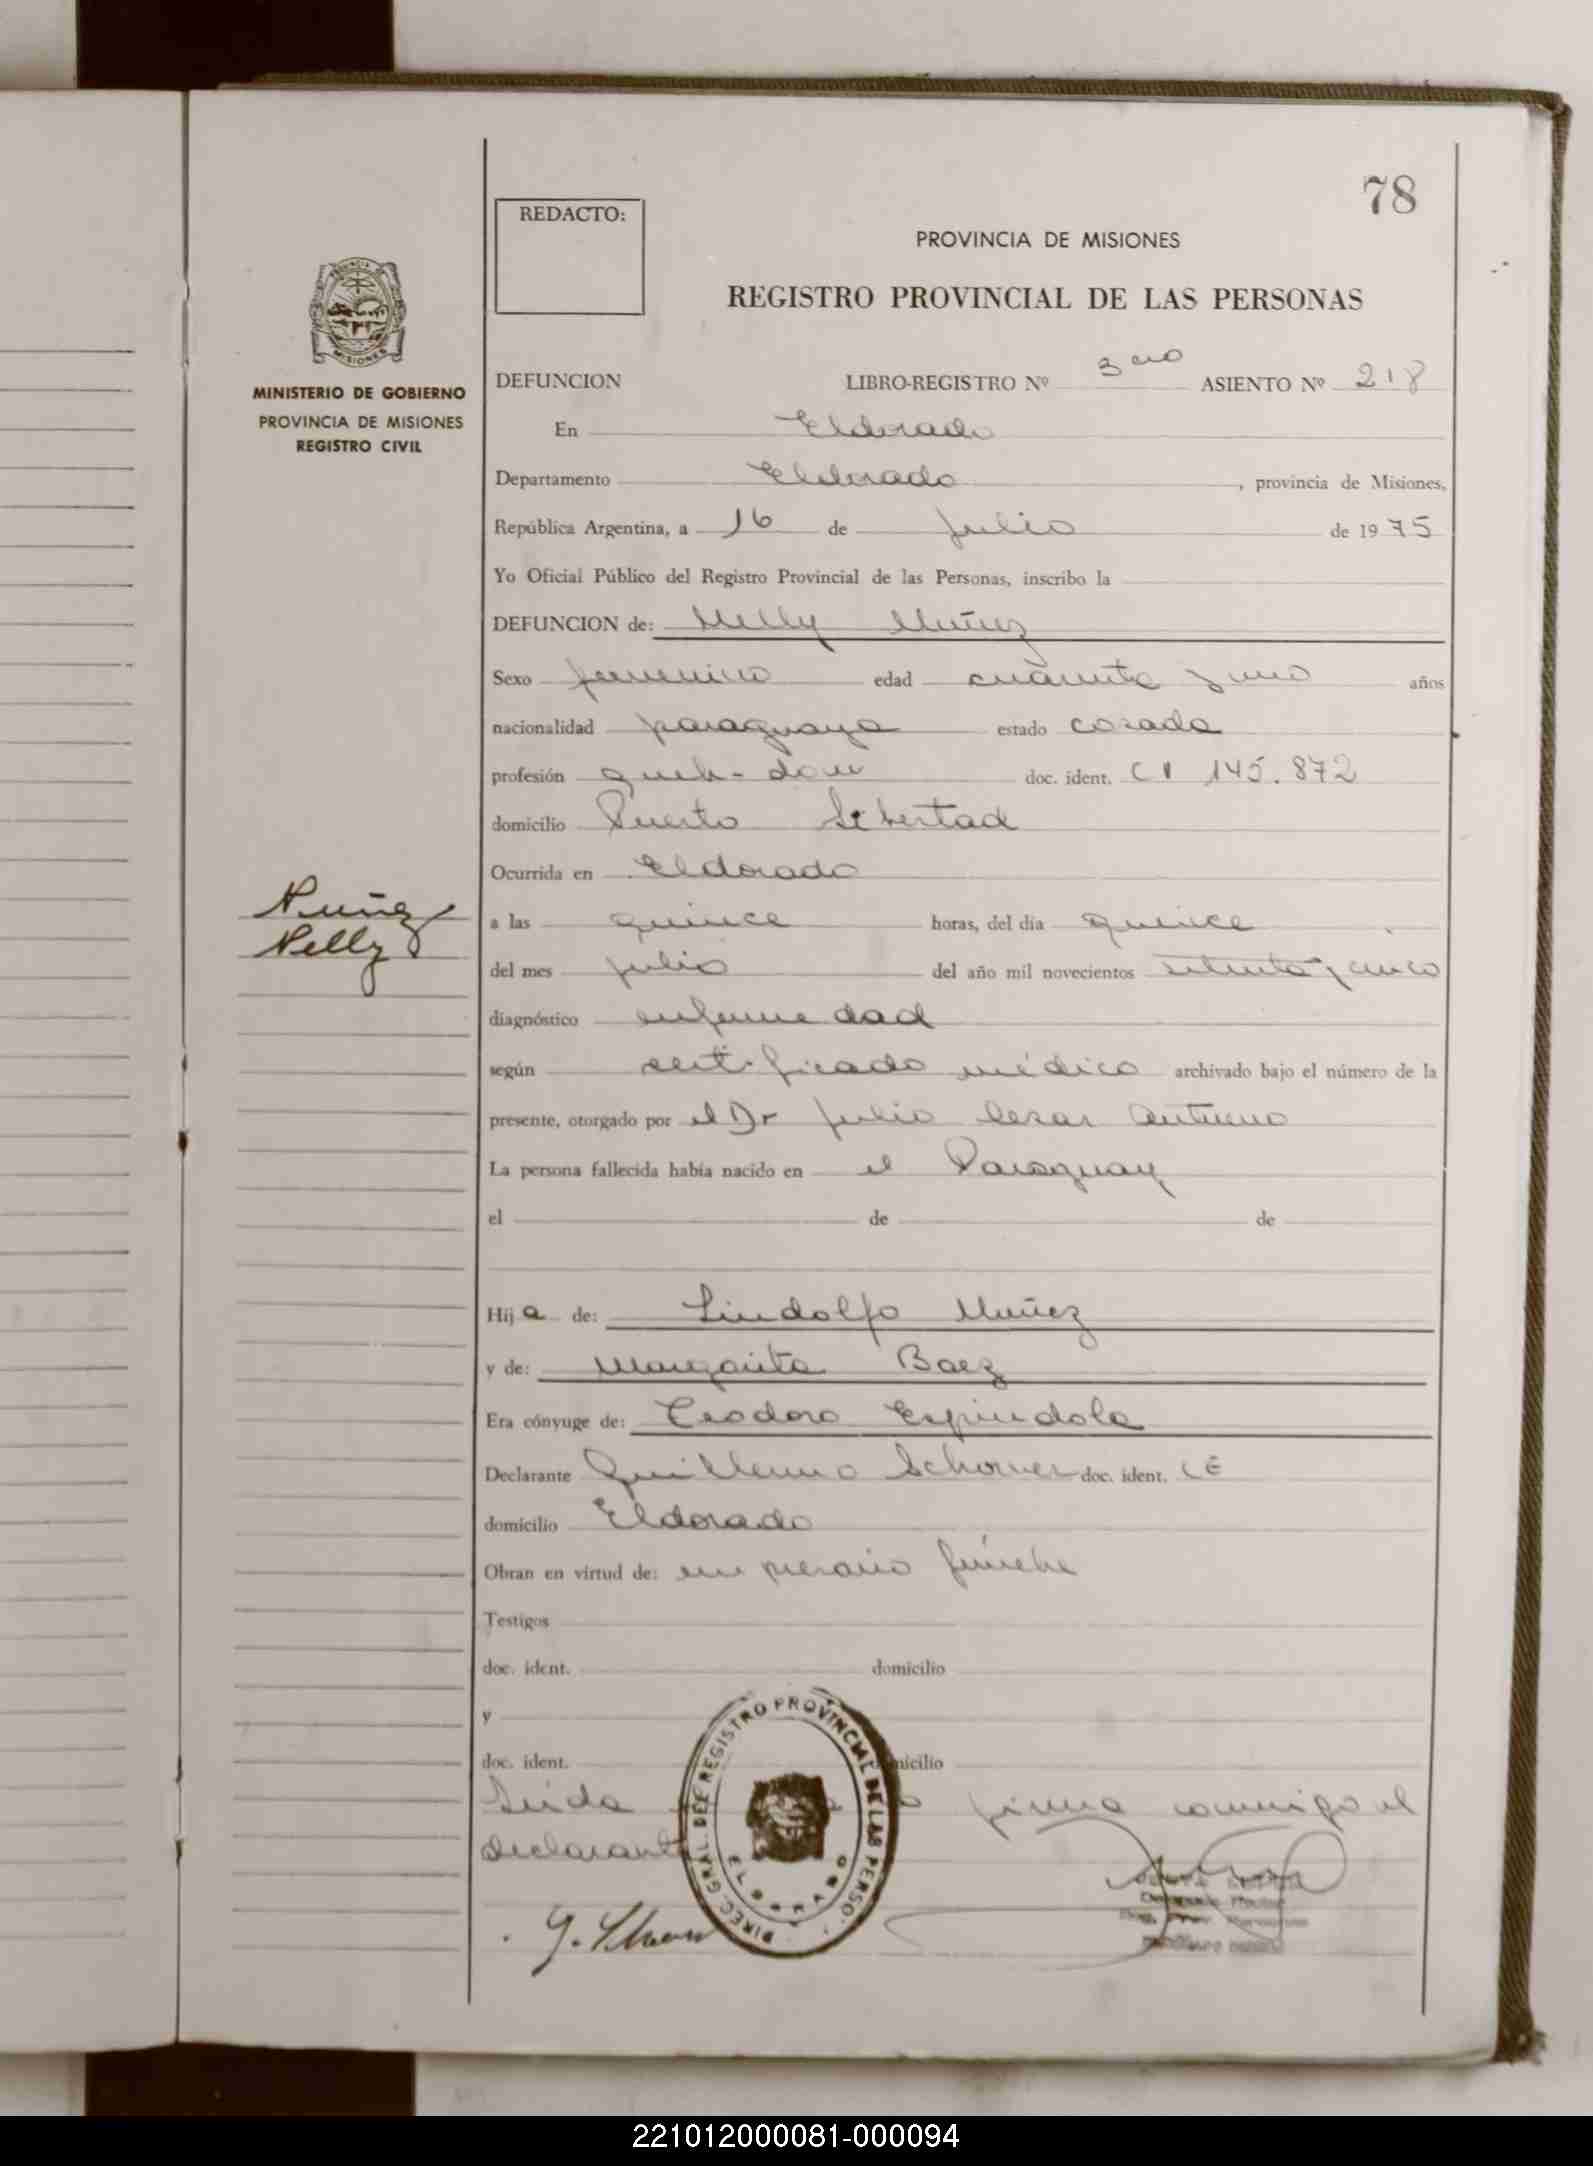 78
REDACTO:
PROVINCIA DE MISIONES
REGISTRO PROVINCIAL DE LAS PERSONAS
PROVINCIA DE
MISIONES
MINISTERIO DE GOBIERNO
PROVINCIA DE MISIONES
REGISTRO CIVIL
DEFUNCION LIBRO-REGISTRO Nº 3ero ASIENTO Nº 218
En Eldorado
Departamento Eldorado, provincia de Misiones,
República Argentina, a 16 de Julio de 1975
Yo Oficial Público del Registro Provincial de las Personas, inscribo la
DEFUNCION de: Nelly Nuñez
Sexo femenino edad cuarenta y uno años
nacionalidad paraguaya estado casada
profesión queh. dom doc. ident. CI 145.872
domicilio Puerto Libertad
Ocurrida en Eldorado
Nuñez
Nelly
a las quince horas, del día quince
del mes julio del año mil novecientos setenta y cinco
diagnóstico enfermedad
según certificado médico archivado bajo el número de la
presente, otorgado por el Dr Julio Cesar
La persona fallecida había nacido en el Paraguay
el de de
Hija de: Lindolfo Nuñez
y de: Margarita Baez
Era cónyuge de: Teodoro Espindola
Declarante Guillermo doc. ident. CE
domicilio Eldorado
Obran en virtud de: empresario fúnebre
Testigos
doc. ident. domicilio
y
doc. ident. domicilio
Leida firma conmigo el
declarante
DIREC. GRAL. DEL REGISTRO PROVINCIAL DE LAS PERSO.
ELDORADO
221012000081-000094